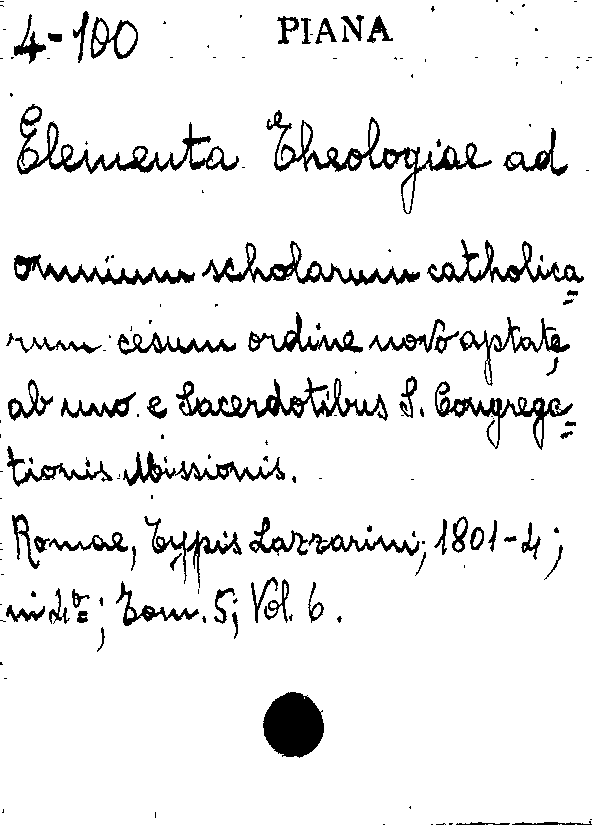 4-100 PIANA
Elementa Theologiae ad
omnium scholarum catholica=
rum cesum ordine novo aptate,
ab uno e Sacerdotibus S. Congrega=
tionis Missionis.
Romae, Typis Lazzarini, 1801-4;
in 4º; Tom. 5; Vol. 6.